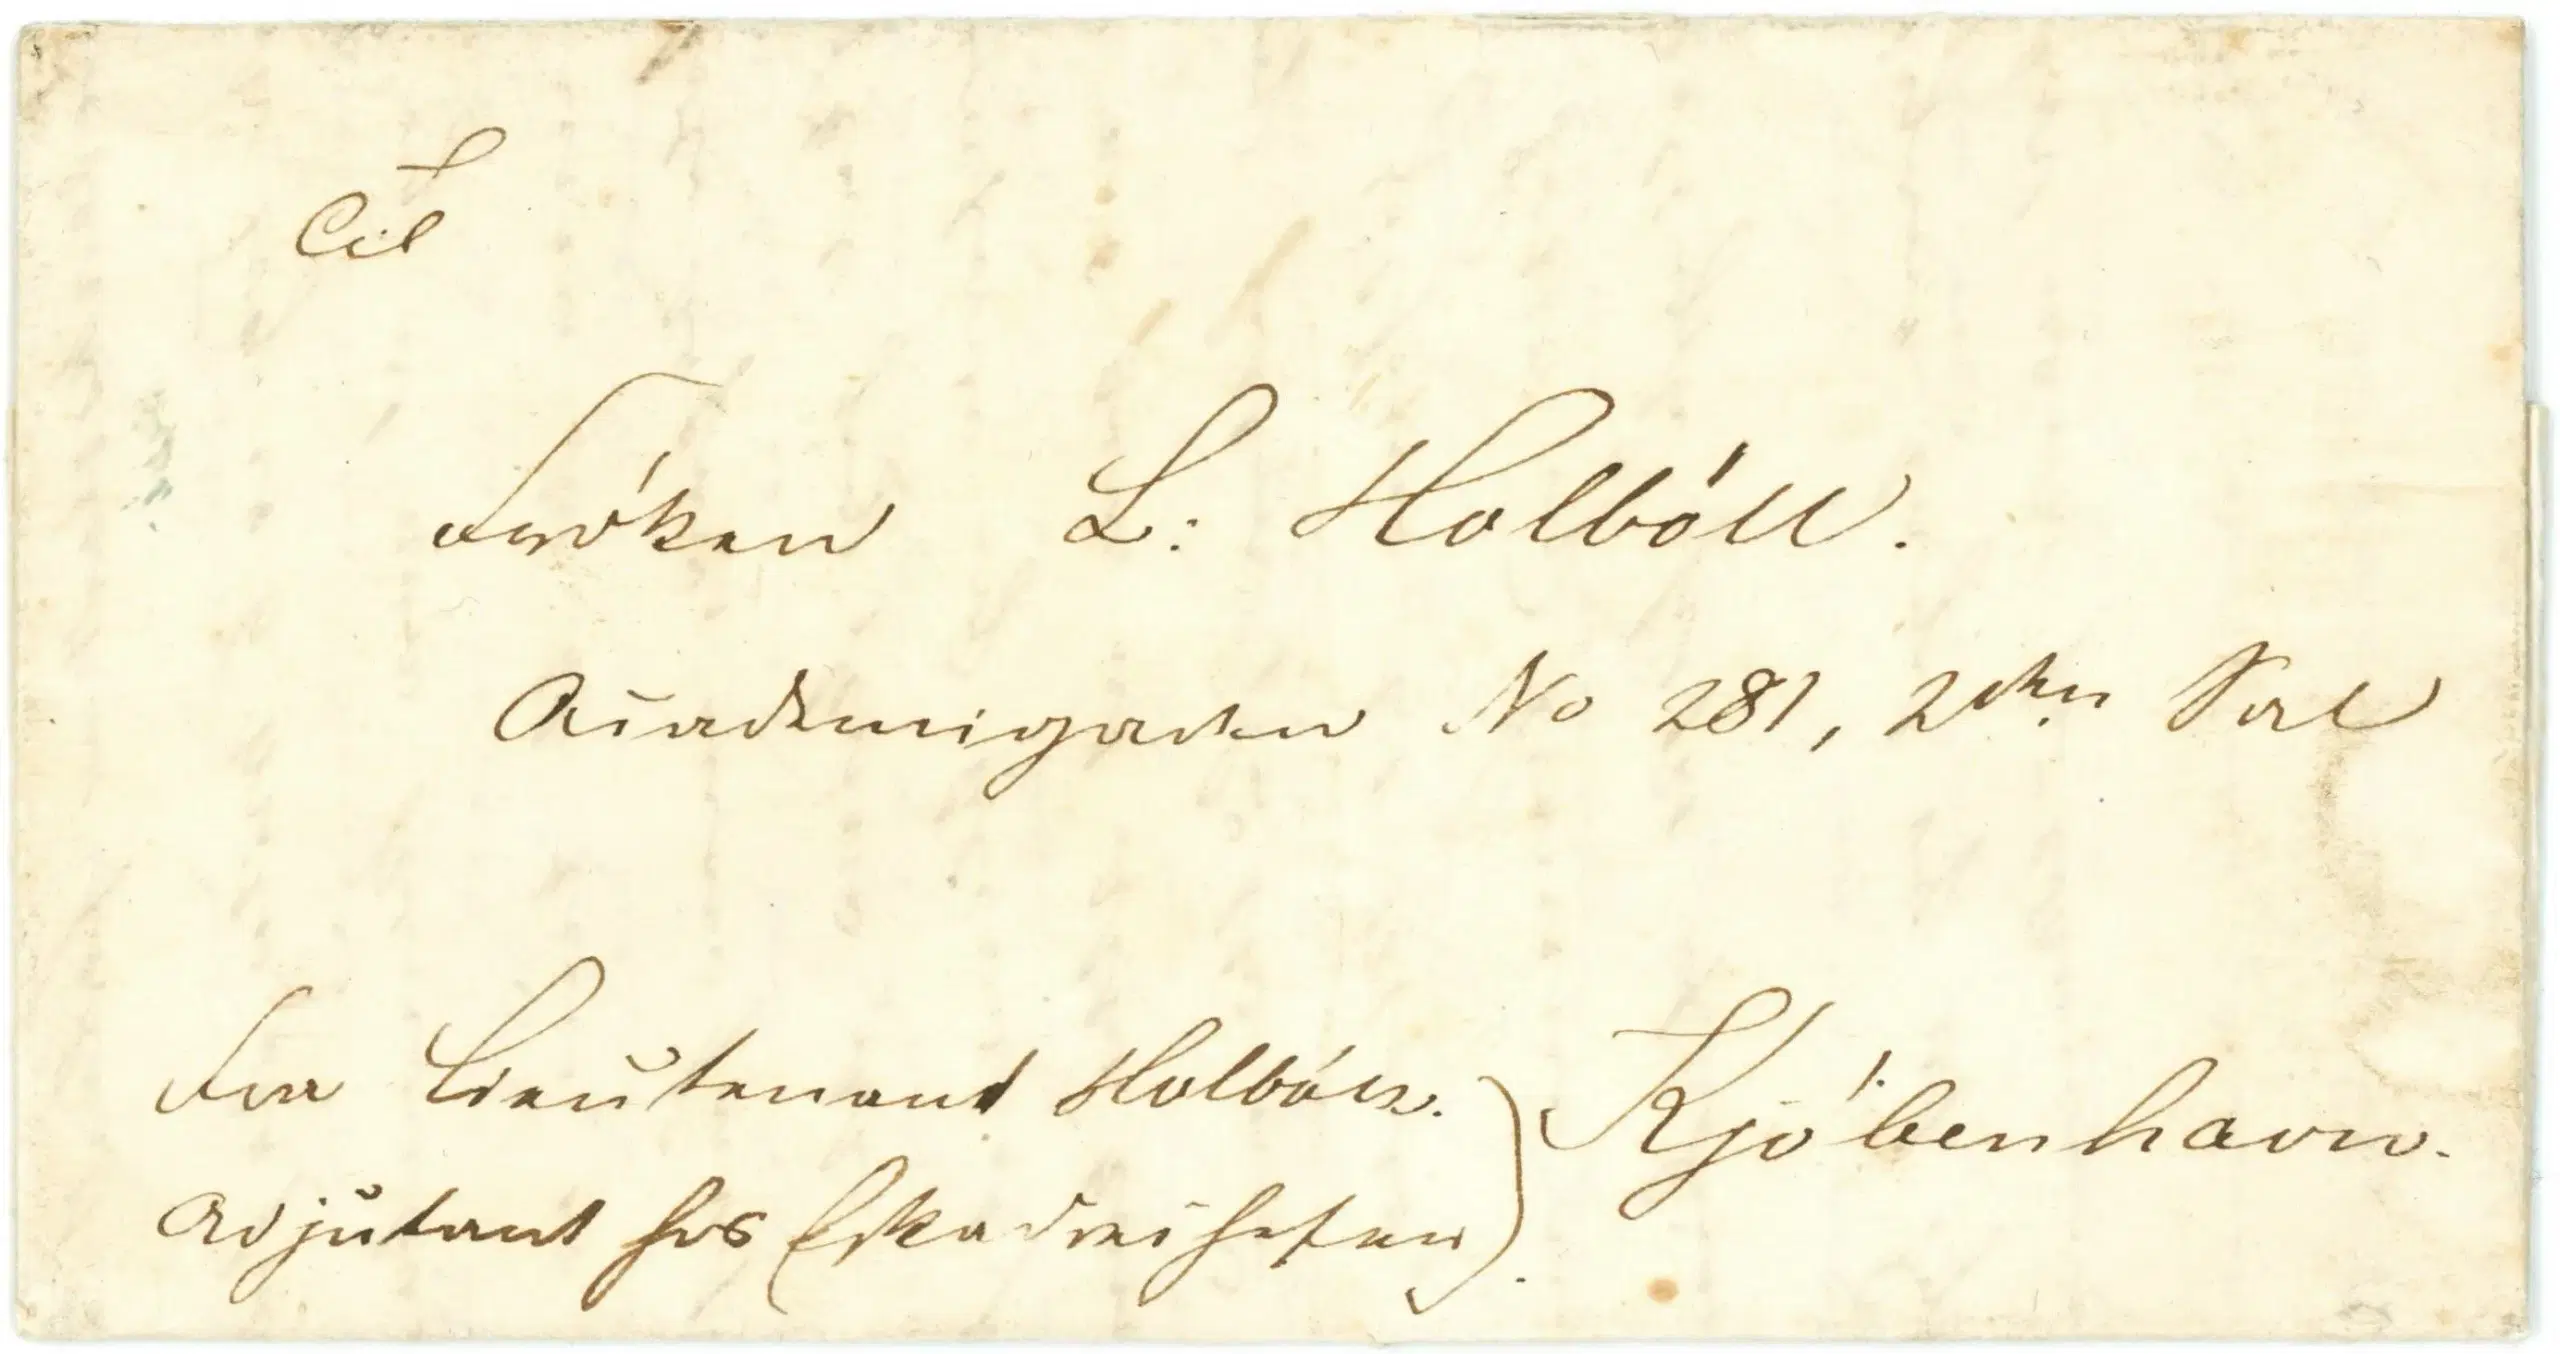 Til
Fröken L: Holböll.
Academigaden No 281, 2den Sal
Fra Lieutenant Holböll.
Adjutant hos Eskadrechefen
Kjöbenhavn.